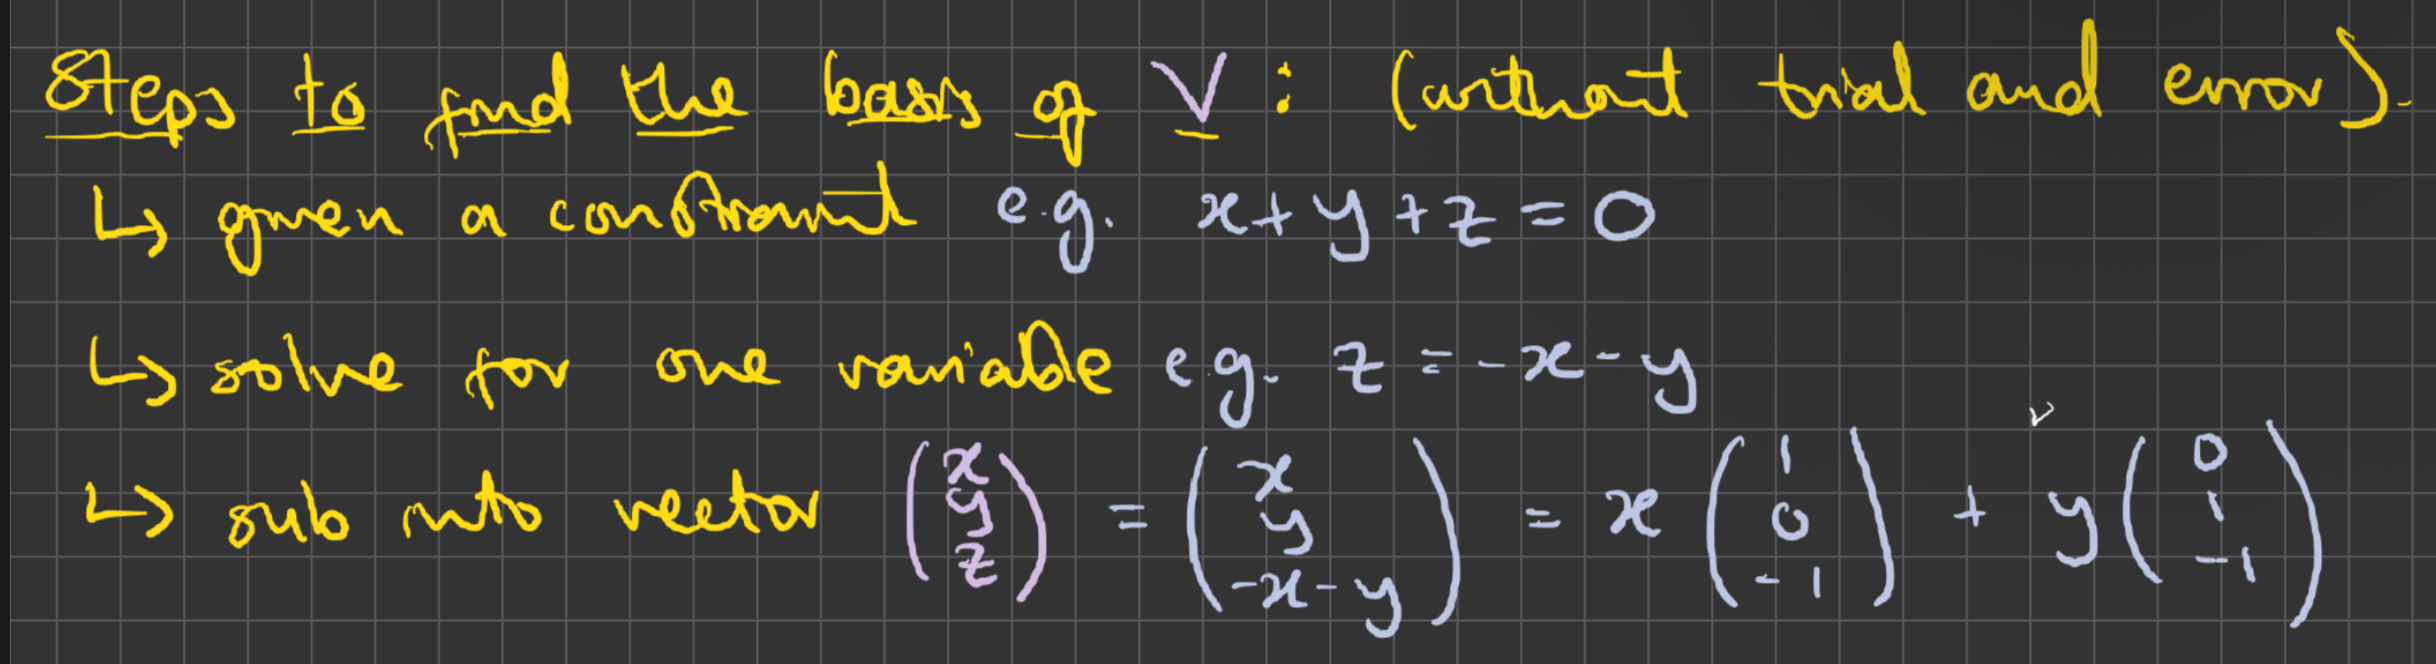 Steps to find the basis of V: (without trial and error).
↳ given a constraint e.g. x+y+z=0
↳ solve for one variable e.g. z=-x-y
↳ sub into vector (x y z) = (x y -x-y) = x(1 0 -1) + y(0 1 -1)